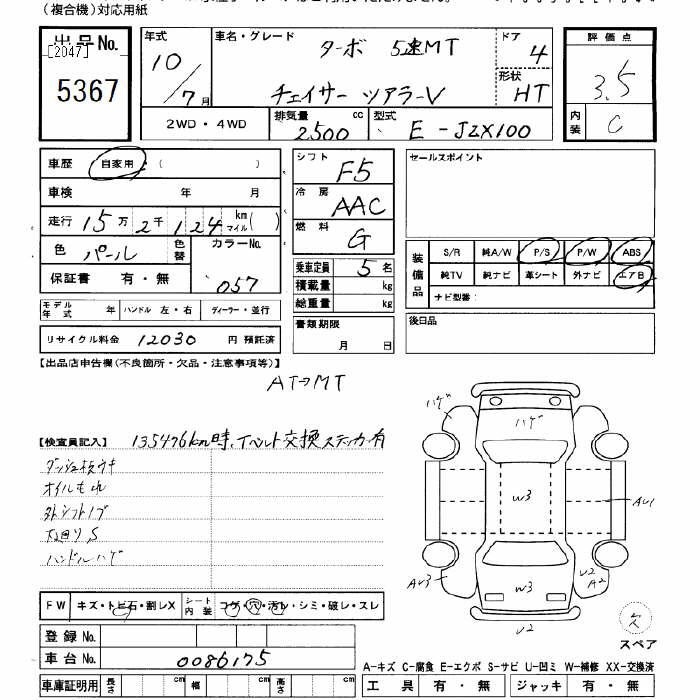 (複合機)対応用紙
出品No.
[2047]
5367
年式 10/7月
車名・グレード ターボ 5速MT
チェイサー ツアラーV
ドア 4
形状 HT
評価点 3.5
内装 C
2WD・4WD
排気量 2500 cc
型式 E-JZX100
車歴 自家用 ( )
車検 年 月
走行 15万2千124 km マイル( )
色 パール 色替
カラーNo. 057
保証書 有・無
シフト F5
冷房 AAC
燃料 G
乗車定員 5名
積載量 kg
総重量 kg
セールスポイント
装備品
S/R 純A/W P/S P/W ABS
純TV 純ナビ 革シート 外ナビ エアB
ナビ型番:
モデル年式 年 ハンドル 左・右 ディーラー・並行
リサイクル料金 12030 円 預託済
書類期限 月 日
後日品
【出品店申告欄(不良箇所・欠品・注意事項等)】
AT→MT
【検査員記入】 135476km時、T.ベルト交換ステッカー有
ダッシュ板ウキ
オイルもれ
外シフトノブ
下回りS
ハンドルハゲ
ハゲ
ハゲ
W3
AU1
AU3
W3
U2
A2
U2
欠
スペア
FW キズ・トビ石・割レX
シート内装 コゲ・穴・汚レ・シミ・破レ・スレ
登録No.
車台No. 0086175
車庫証明用 長さ cm 幅 cm 高さ cm
A-キズ C-腐食 E-エクボ S-サビ U-凹ミ W-補修 XX-交換済
工具 有・無 ジャッキ 有・無